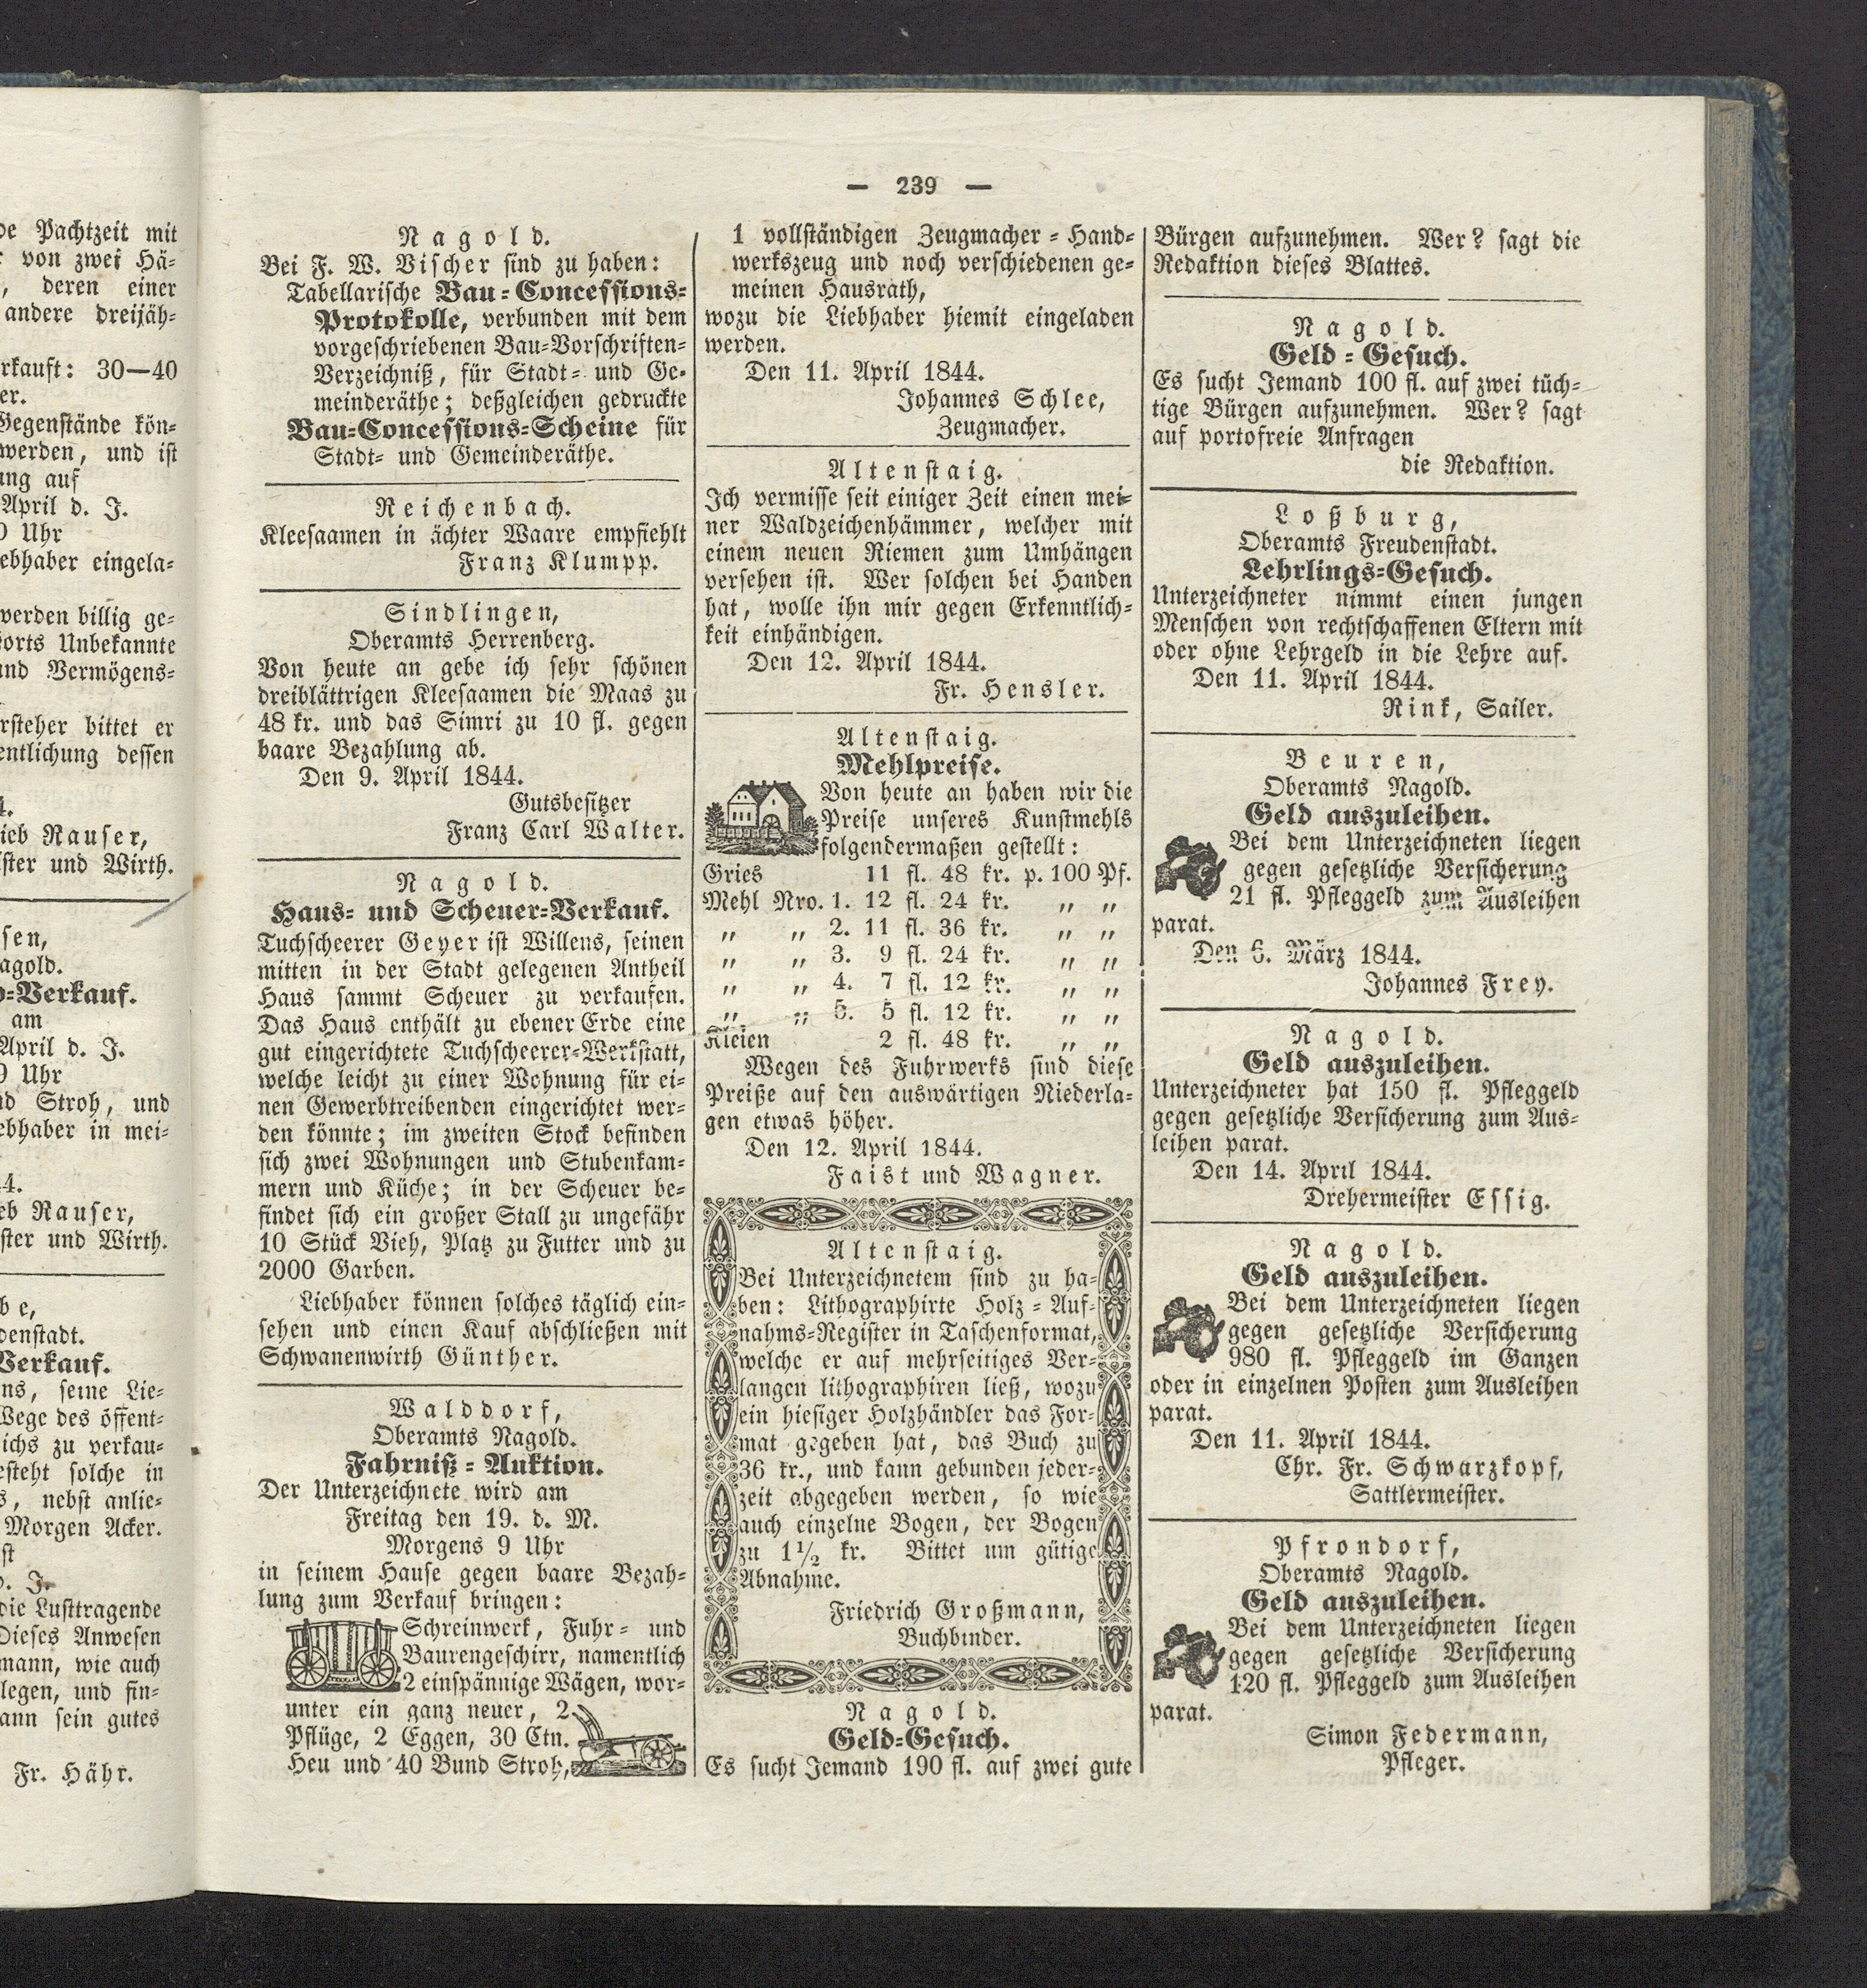 de Pachtzeit mit
von zwei Hä-
, deren einer
andere dreijäh-
rkauft: 30—40
er.
Gegenstände kön-
werden, und ist
ung auf
April d. J.
Uhr
ebhaber eingela-
werden billig ge-
orts Unbekannte
und Vermögens-
rsteher bittet er
entlichung dessen
4.
ieb Rauser,
ster und Wirth.
sen,
agold.
=Verkauf.
am
April d. J.
9 Uhr
nd Stroh, und
ebhaber in mei-
44.
eb Rauser,
ster und Wirth.
be,
denstadt.
Verkauf.
ns, seine Lie-
Wege des öffent-
ichs zu verkau-
esteht solche in
s, nebst anlie-
Morgen Acker.
st
J.
die Lusttragende
Dieses Anwesen
mann, wie auch
legen, und fin-
ann sein gutes
Fr. Hähr.
— 239 —
Nagold.
Bei F. W. Vischer sind zu haben:
Tabellarische Bau-Concessions-
Protokolle, verbunden mit dem
vorgeschriebenen Bau-Vorschriften-
Verzeichniß, für Stadt- und Ge-
meinderäthe; deßgleichen gedruckte
Bau-Concessions-Scheine für
Stadt- und Gemeinderäthe.
Reichenbach.
Kleesaamen in ächter Waare empfiehlt
Franz Klumpp.
Sindlingen,
Oberamts Herrenberg.
Von heute an gebe ich sehr schönen
dreiblättrigen Kleesaamen die Maas zu
48 kr. und das Simri zu 10 fl. gegen
baare Bezahlung ab.
Den 9. April 1844.
Gutsbesitzer
Franz Carl Walter.
Nagold.
Haus- und Scheuer-Verkauf.
Tuchscheerer Geyer ist Willens, seinen
mitten in der Stadt gelegenen Antheil
Haus sammt Scheuer zu verkaufen.
Das Haus enthält zu ebener Erde eine
gut eingerichtete Tuchscheerer-Werkstatt,
welche leicht zu einer Wohnung für ei-
nen Gewerbtreibenden eingerichtet wer-
den könnte; im zweiten Stock befinden
sich zwei Wohnungen und Stubenkam-
mern und Küche; in der Scheuer be-
findet sich ein großer Stall zu ungefähr
10 Stück Vieh, Platz zu Futter und zu
2000 Garben.
Liebhaber können solches täglich ein-
sehen und einen Kauf abschließen mit
Schwanenwirth Günther.
Walddorf,
Oberamts Nagold.
Fahrniß-Auktion.
Der Unterzeichnete wird am
Freitag den 19. d. M.
Morgens 9 Uhr
in seinem Hause gegen baare Bezah-
lung zum Verkauf bringen:
Schreinwerk, Fuhr- und
Baurengeschirr, namentlich
2 einspännige Wägen, wor-
unter ein ganz neuer, 2
Pflüge, 2 Eggen, 30 Ctn.
Heu und 40 Bund Stroh,
1 vollständigen Zeugmacher-Hand-
werkszeug und noch verschiedenen ge-
meinen Hausrath,
wozu die Liebhaber hiemit eingeladen
werden.
Den 11. April 1844.
Johannes Schlee,
Zeugmacher.
Altenstaig.
Ich vermisse seit einiger Zeit einen mei-
ner Waldzeichenhämmer, welcher mit
einem neuen Riemen zum Umhängen
versehen ist. Wer solchen bei Handen
hat, wolle ihn mir gegen Erkenntlich-
keit einhändigen.
Den 12. April 1844.
Fr. Hensler.
Altenstaig.
Mehlpreise.
Von heute an haben wir die
Preise unseres Kunstmehls
folgendermaßen gestellt:
Gries 11 fl. 48 kr. p. 100 Pf.
Mehl Nro. 1. 12 fl. 24 kr. „ „
„ „ 2. 11 fl. 36 kr. „ „
„ „ 3. 9 fl. 24 kr. „ „
„ „ 4. 7 fl. 12 kr. „ „
„ „ 5. 5 fl. 12 kr. „ „
Kleien 2 fl. 48 kr. „ „
Wegen des Fuhrwerks sind diese
Preiße auf den auswärtigen Niederla-
gen etwas höher.
Den 12. April 1844.
Faist und Wagner.
Altenstaig.
Bei Unterzeichnetem sind zu ha-
ben: Lithographirte Holz-Auf-
nahms-Register in Taschenformat,
welche er auf mehrseitiges Ver-
langen lithographiren ließ, wozu
ein hiesiger Holzhändler das For-
mat gegeben hat, das Buch zu
36 kr., und kann gebunden jeder-
zeit abgegeben werden, so wie
auch einzelne Bogen, der Bogen
zu 1½ kr. Bittet um gütige
Abnahme.
Friedrich Großmann,
Buchbinder.
Nagold.
Geld-Gesuch.
Es sucht Jemand 190 fl. auf zwei gute
Bürgen aufzunehmen. Wer? sagt die
Redaktion dieses Blattes.
Nagold.
Geld-Gesuch.
Es sucht Jemand 100 fl. auf zwei tüch-
tige Bürgen aufzunehmen. Wer? sagt
auf portofreie Anfragen
die Redaktion.
Loßburg,
Oberamts Freudenstadt.
Lehrlings-Gesuch.
Unterzeichneter nimmt einen jungen
Menschen von rechtschaffenen Eltern mit
oder ohne Lehrgeld in die Lehre auf.
Den 11. April 1844.
Rink, Sailer.
Beuren,
Oberamts Nagold.
Geld auszuleihen.
Bei dem Unterzeichneten liegen
gegen gesetzliche Versicherung
21 fl. Pfleggeld zum Ausleihen
parat.
Den 6. März 1844.
Johannes Frey.
Nagold.
Geld auszuleihen.
Unterzeichneter hat 150 fl. Pfleggeld
gegen gesetzliche Versicherung zum Aus-
leihen parat.
Den 14. April 1844.
Drehermeister Essig.
Nagold.
Geld auszuleihen.
Bei dem Unterzeichneten liegen
gegen gesetzliche Versicherung
980 fl. Pfleggeld im Ganzen
oder in einzelnen Posten zum Ausleihen
parat.
Den 11. April 1844.
Chr. Fr. Schwarzkopf,
Sattlermeister.
Pfrondorf,
Oberamts Nagold.
Geld auszuleihen.
Bei dem Unterzeichneten liegen
gegen gesetzliche Versicherung
120 fl. Pfleggeld zum Ausleihen
parat.
Simon Federmann,
Pfleger.